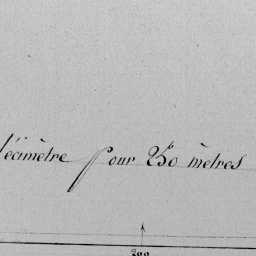 décimètre pour 250 mètres
200